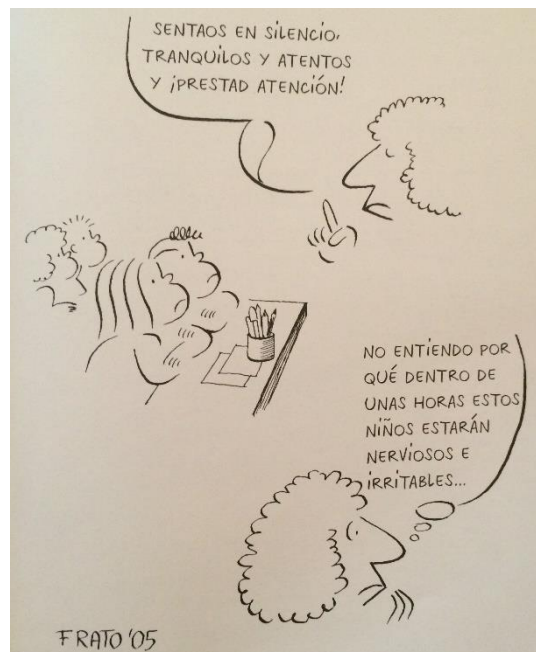 SENTAOS EN SILENCIO,
TRANQUILOS Y ATENTOS
Y ¡PRESTAD ATENCIÓN!
NO ENTIENDO POR
QUÉ DENTRO DE
UNAS HORAS ESTOS
NIÑOS ESTARÁN
NERVIOSOS E
IRRITABLES...
FRATO '05